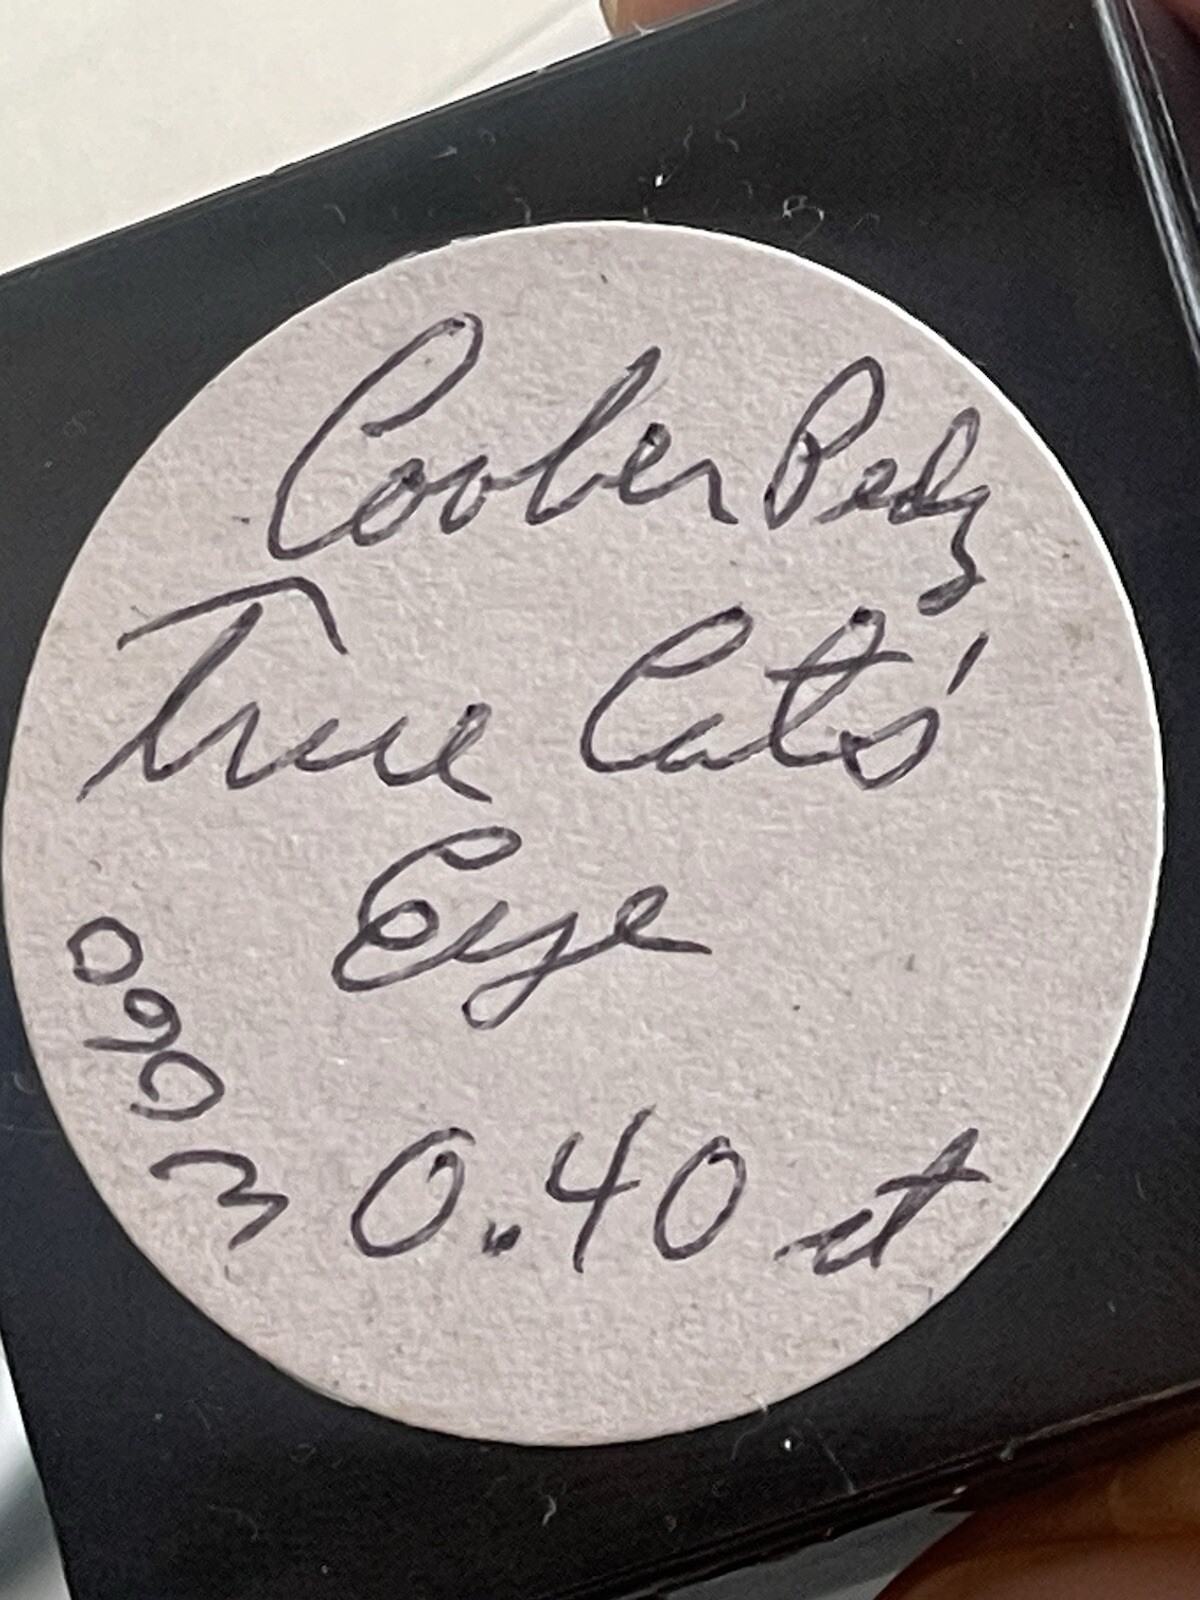 Coober Pedy
True Cats'
Eye
0.40 ct